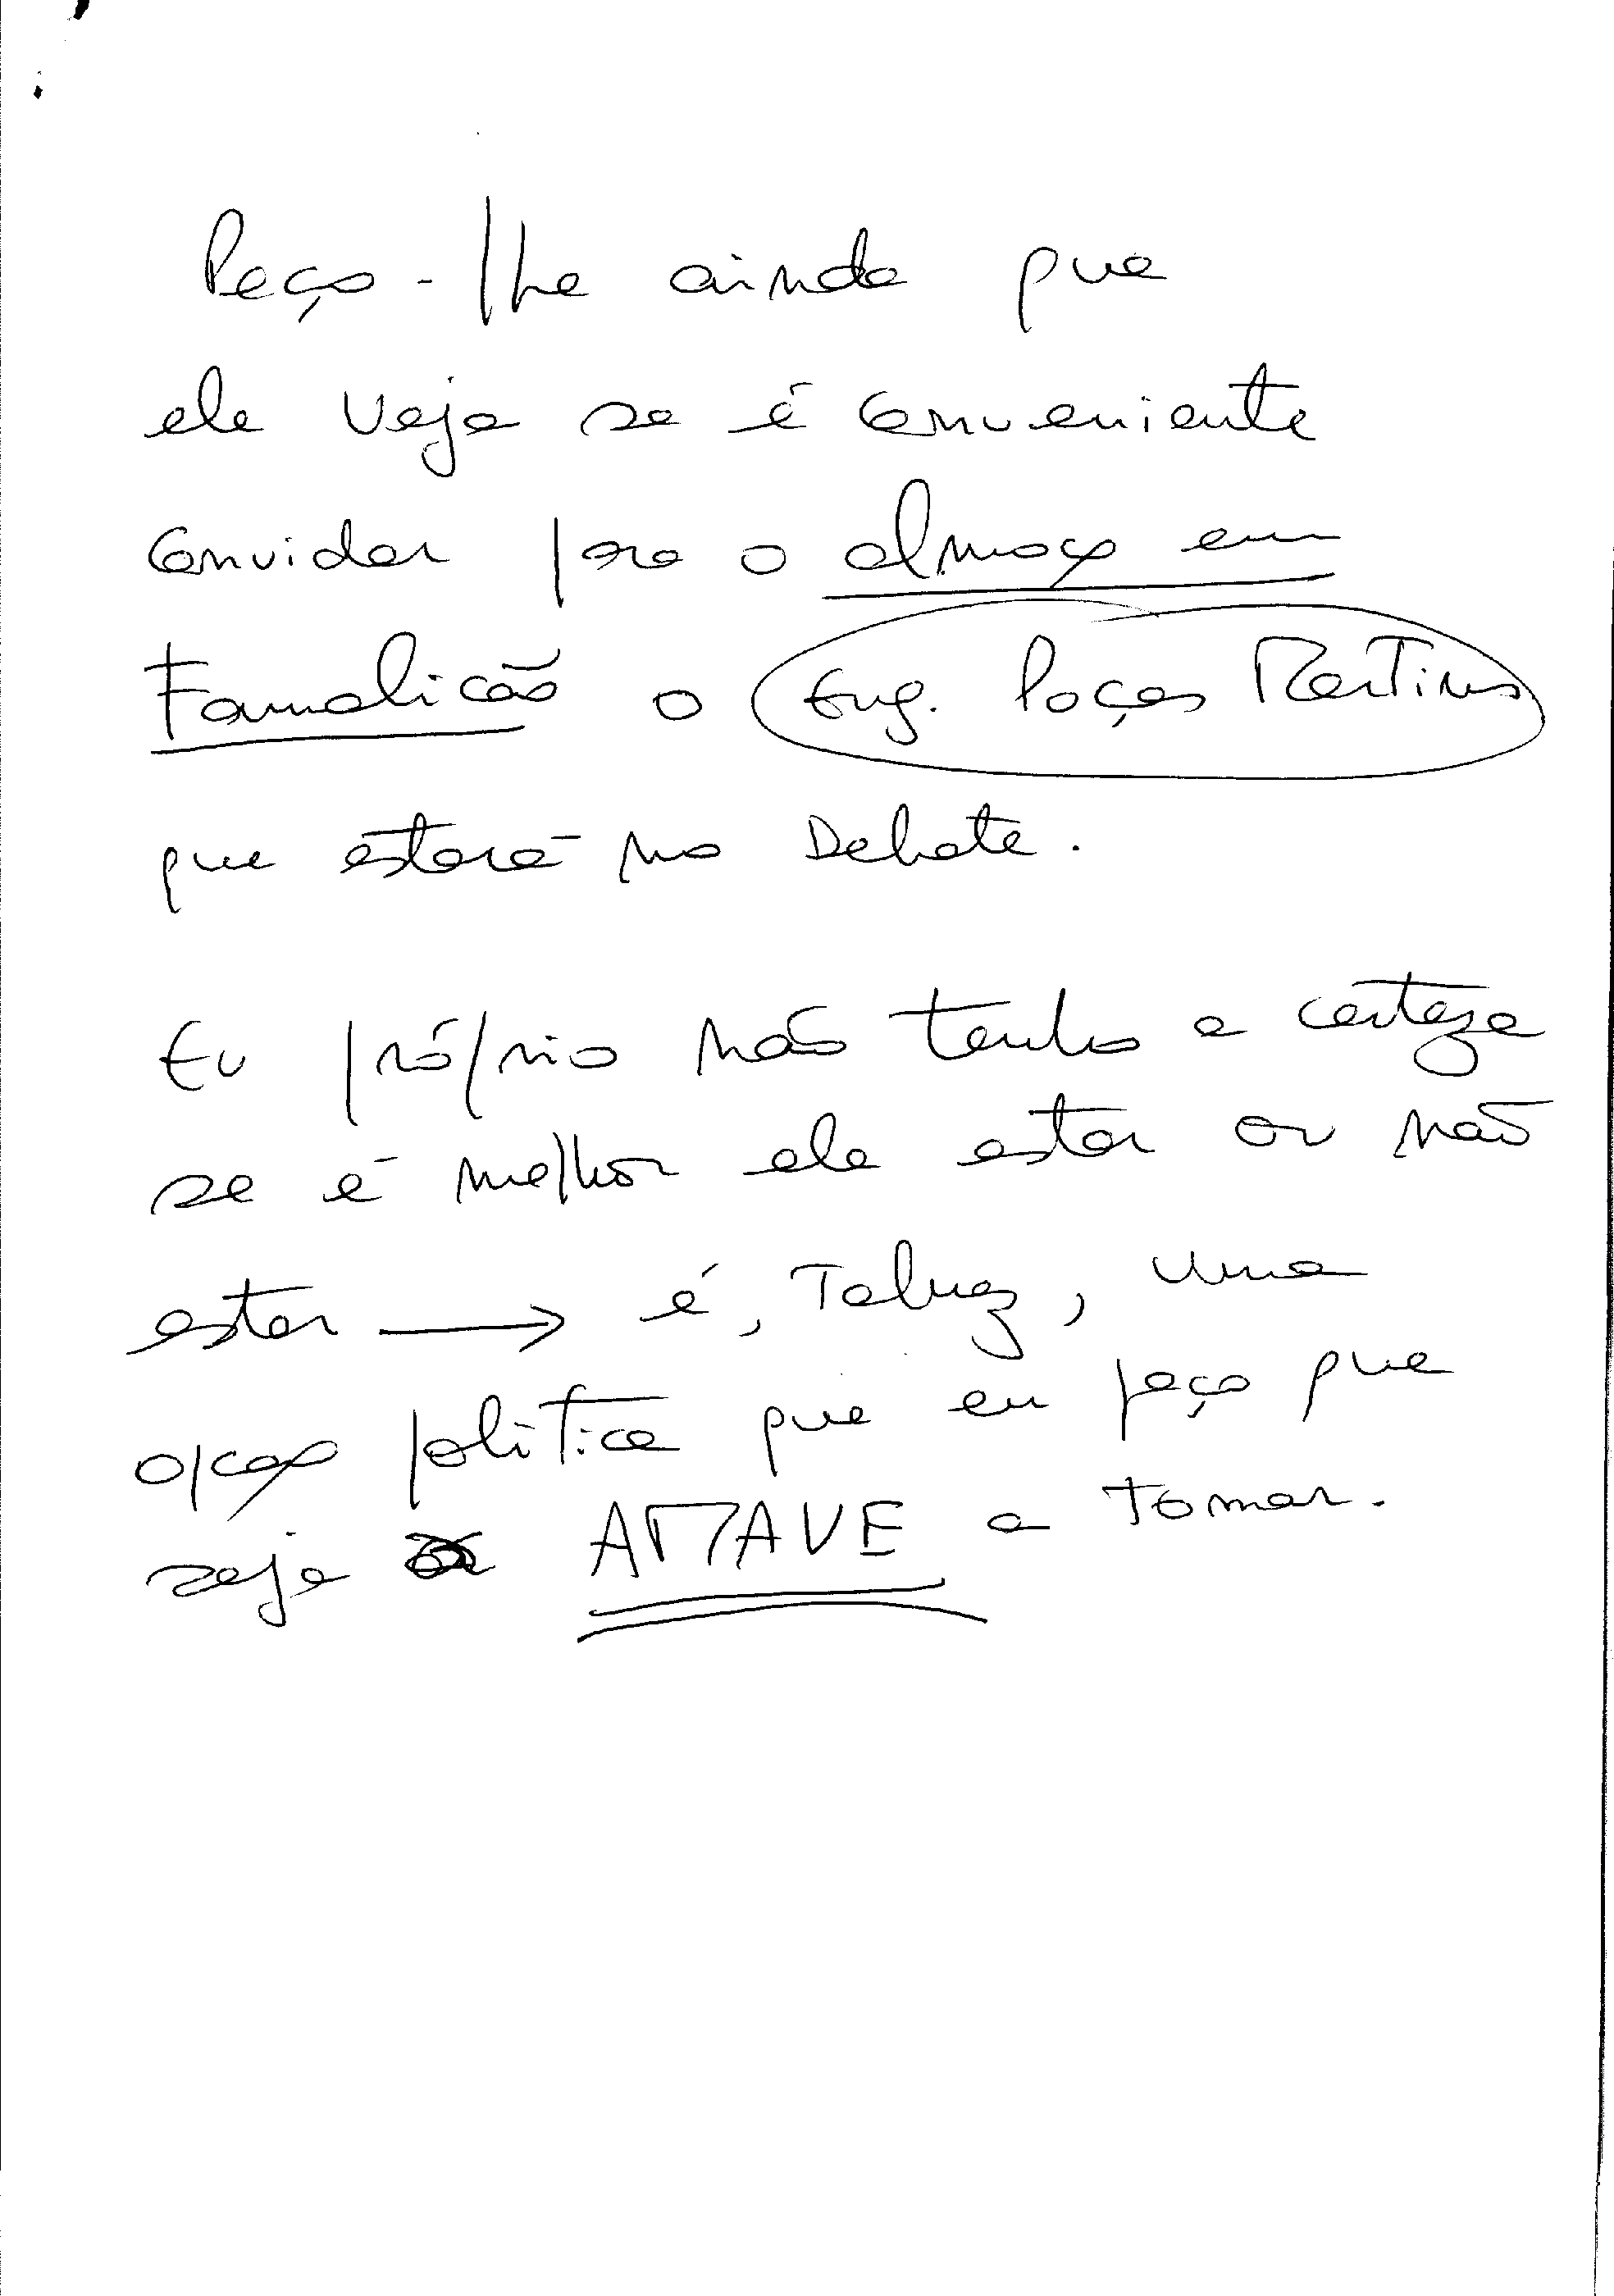 Peço-lhe ainda que
ele veja se é conveniente
convidar para o almoço em
Famalicão o Eng. Poças Martins
que estará no Debate.
Eu próprio não tenho a certeza
se é melhor ele estar ou não
estar → é, Talvez, uma
opção política que eu peço que
seja AMAVE a Tomar.